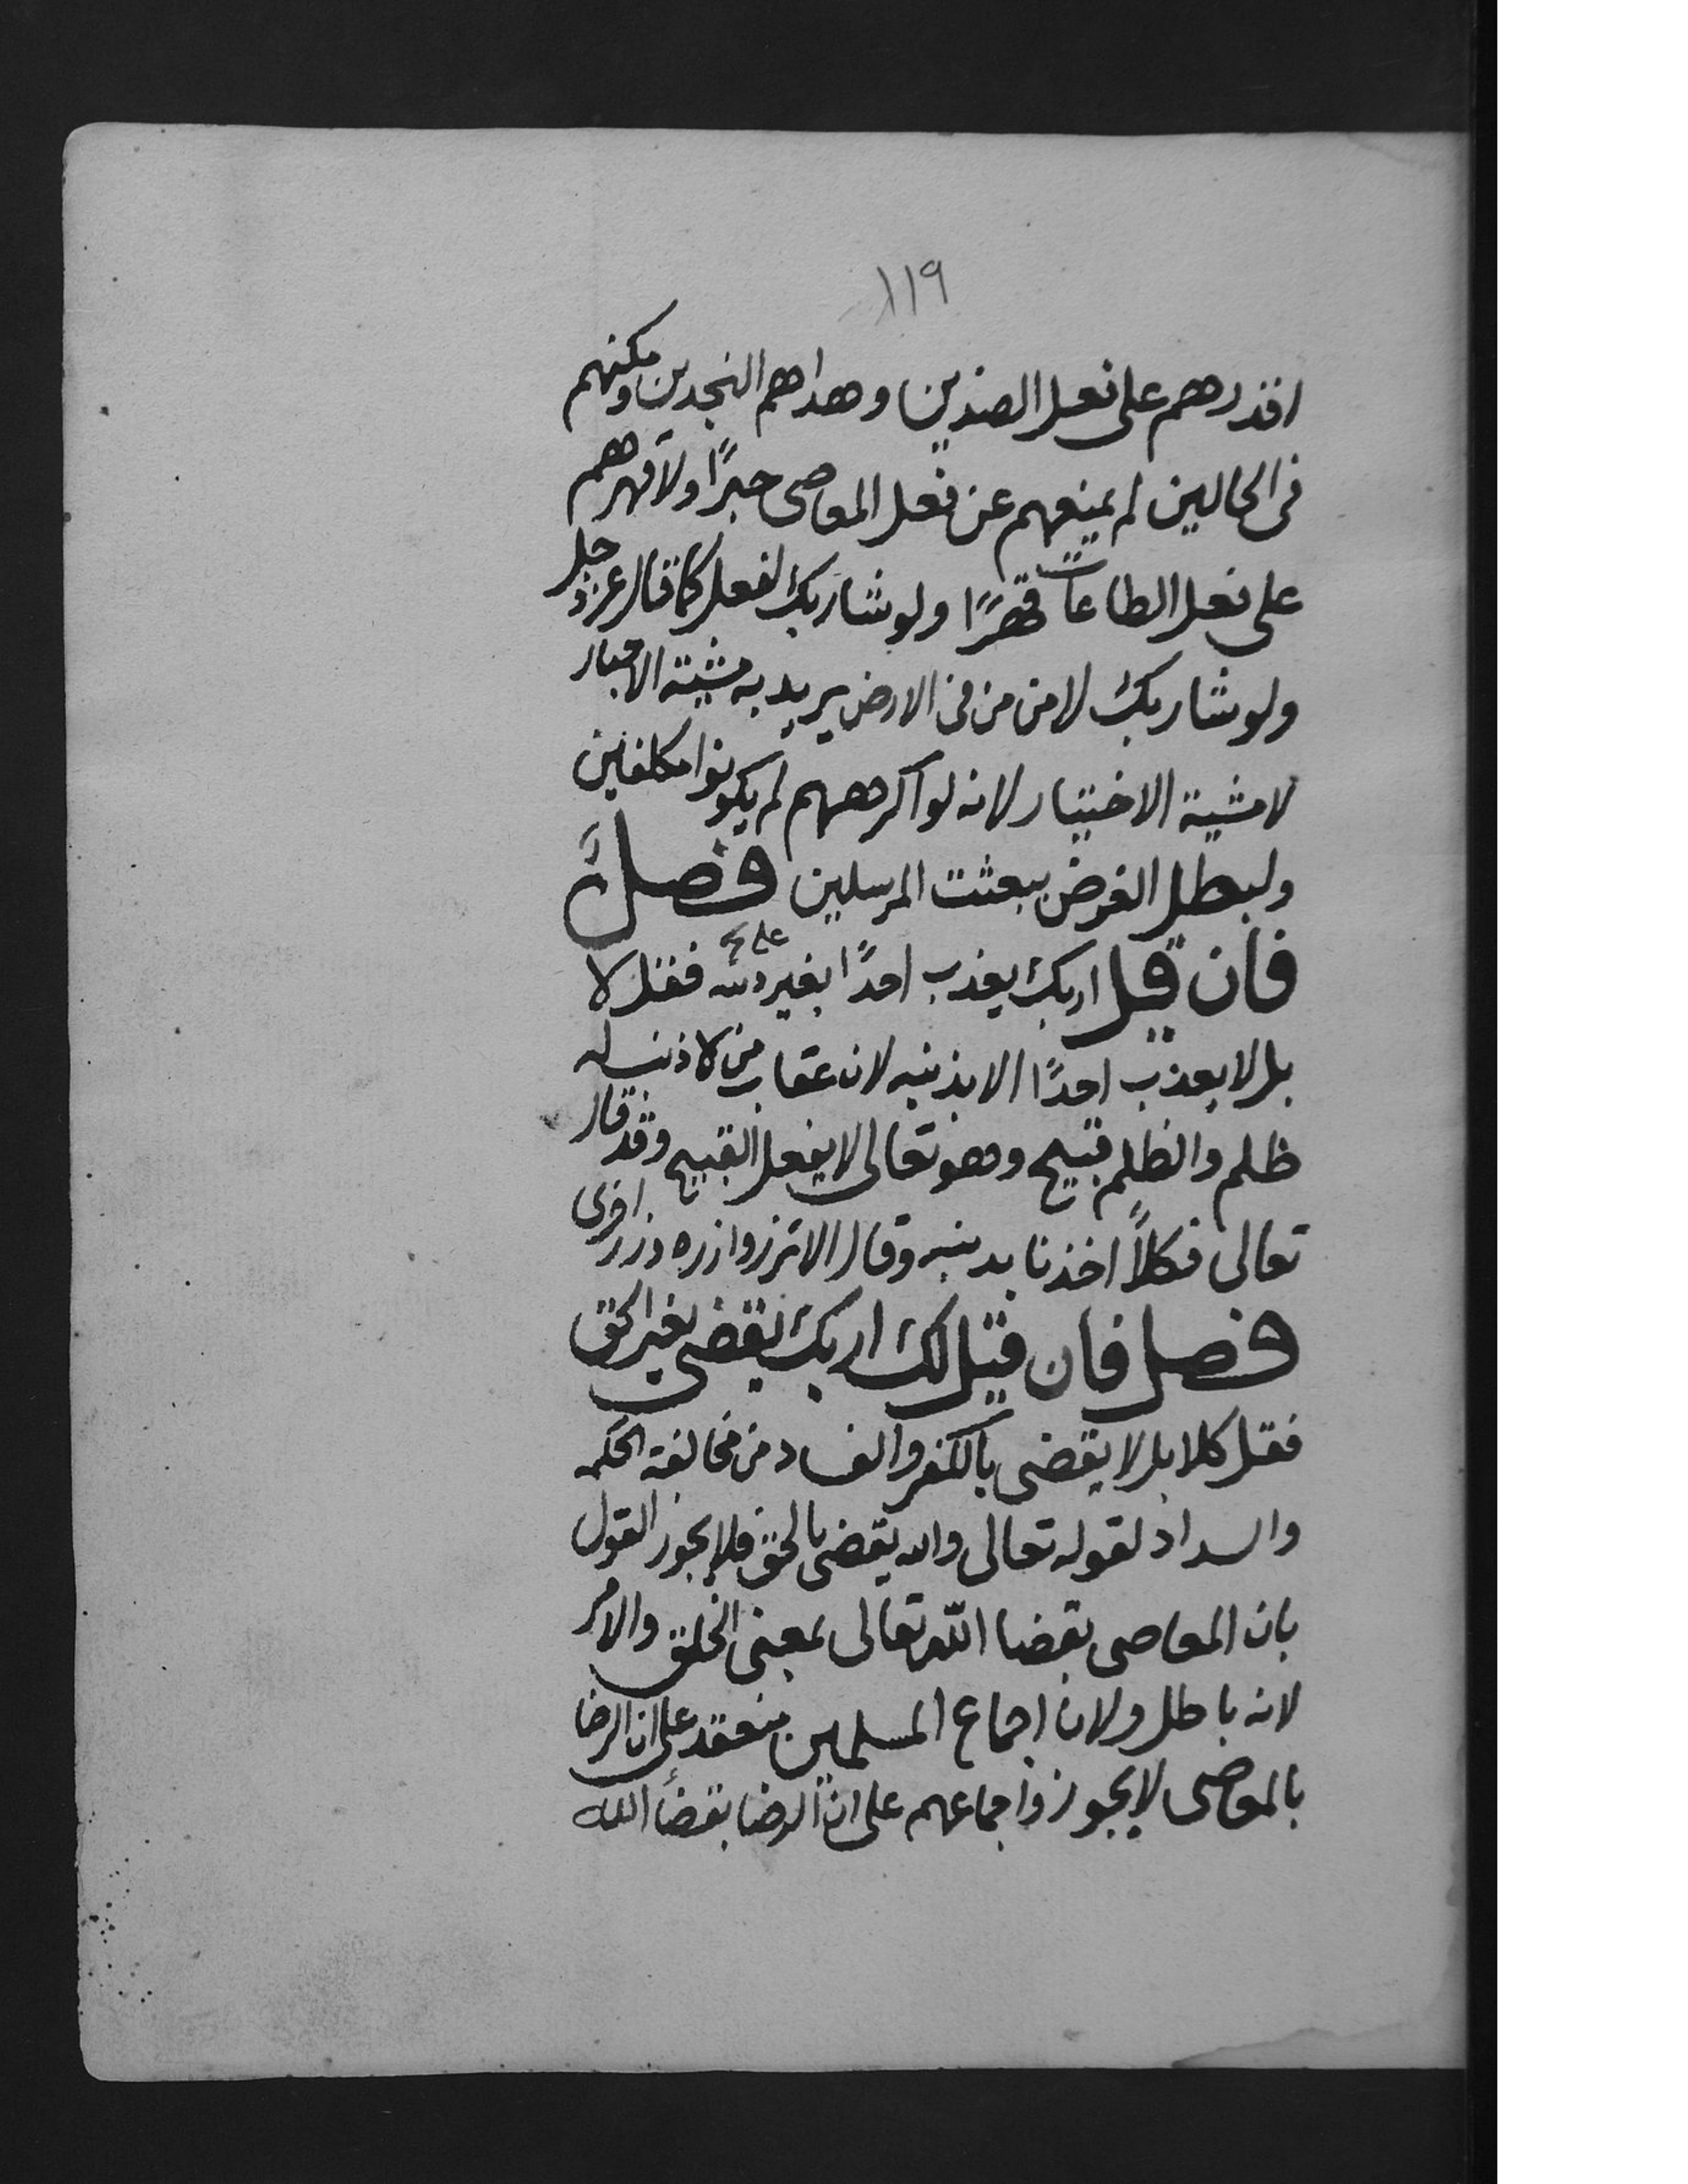 ١١٩
اقدرهم على فعل الضدين وهداهم النجدين ومكنهم
فى الحالين لم يمنعهم عن فعل المعاصى جبرًا ولا قهرهم
على فعل الطاعات قهرًا ولو شا ربك لفعل كما قال عز وجل
ولو شا ربك لامن من فى الارض يريد به مشية الاجبار
لا مشية الاختيار لانه لو اكرههم لم يكونوا مكلفين
ولبطل الغرض ببعثت المرسلين فصل
فان قيل اربك يعذب احدًا بغير ذنبه فقل لا
بل لا يعذب احدًا الا بذنبه لان عقاب من لا ذنب له
ظلم والظلم قبيح وهو تعالى لا يفعل القبيح وقد قال
تعالى فكلاً اخذنا بذنبه وقال الا تزر وازره وزر اخرى
فصل فان قيل لك اربك يقضى بغير الحق
فقل كلا بل لا يقضى بالكفر والفساد من مخالفة الحكمه
والسداد لقوله تعالى والله يقضى بالحق فلا يجوز القول
بان المعاصى بقضا الله تعالى بمعنى الخلق والامر
لانه باطل ولان اجماع المسلمين منعقد على ان الرضا
بالمعاصى لا يجوز واجماعهم على ان الرضا بقضأ الله